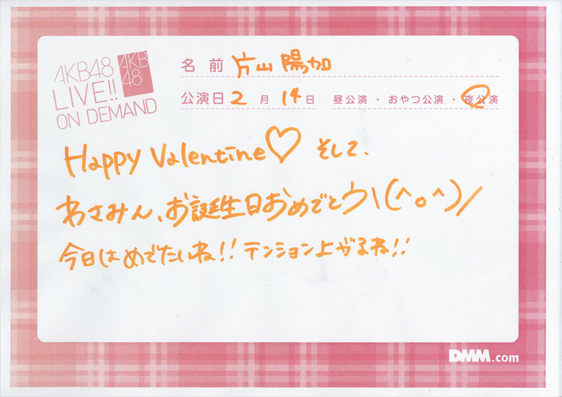 AKB48
LIVE!!
ON DEMAND
AKB
48
名前 片山陽加
公演日 2月14日 昼公演・おやつ公演・夜公演
Happy Valentine♡ そして、
わさみん、お誕生日おめでとう\(^o^)/
今日はめでたいね!! テンション上がるね!!
DMM.com